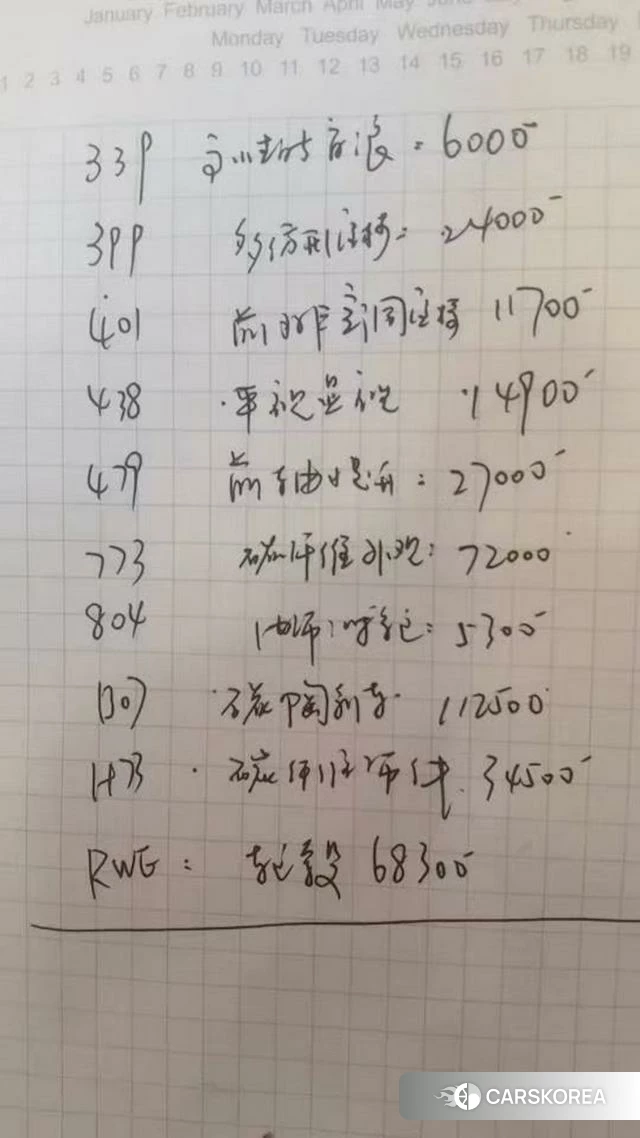 January February March April May June
Monday Tuesday Wednesday Thursday
1 2 3 4 5 6 7 8 9 10 11 12 13 14 15 16 17 18 19
339 : 6000
399 : 24000
401 前 座椅 11700
438 平视显视 14900
479 前轴提升 : 27000
773 碳纤维外观 : 72000
804 : 5300
1307 碳陶刹车 112500
1473 碳纤维饰件 34500
RWE : 轮毂 68300
CARSKOREA